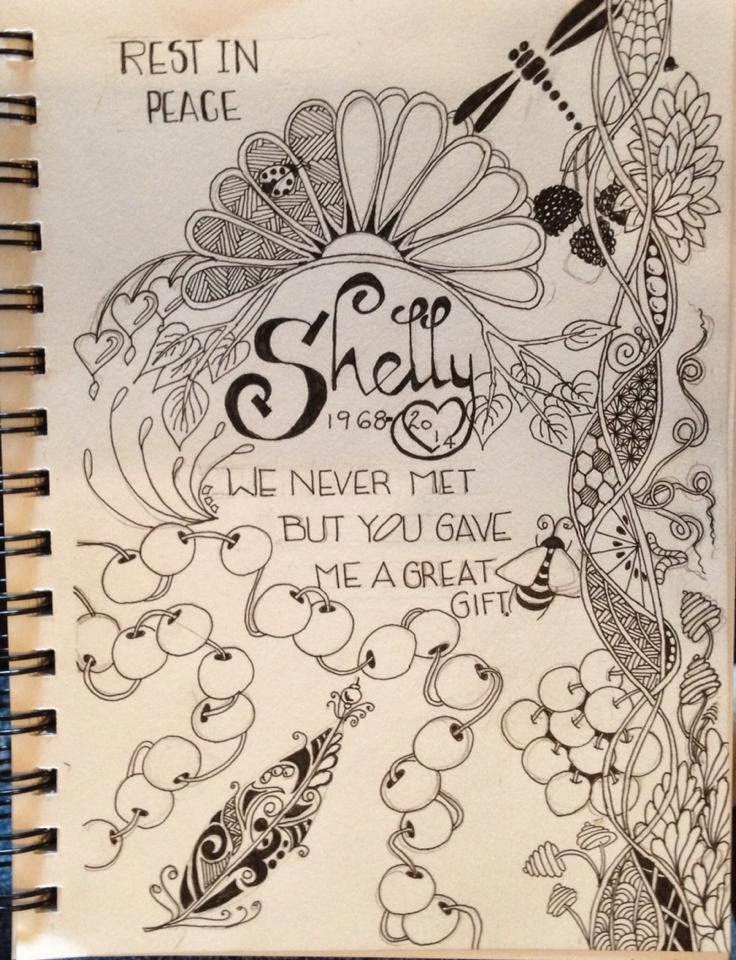 REST IN
PEACE
Shelly
1968-2014
WE NEVER MET
BUT YOU GAVE
ME A GREAT
GIFT.